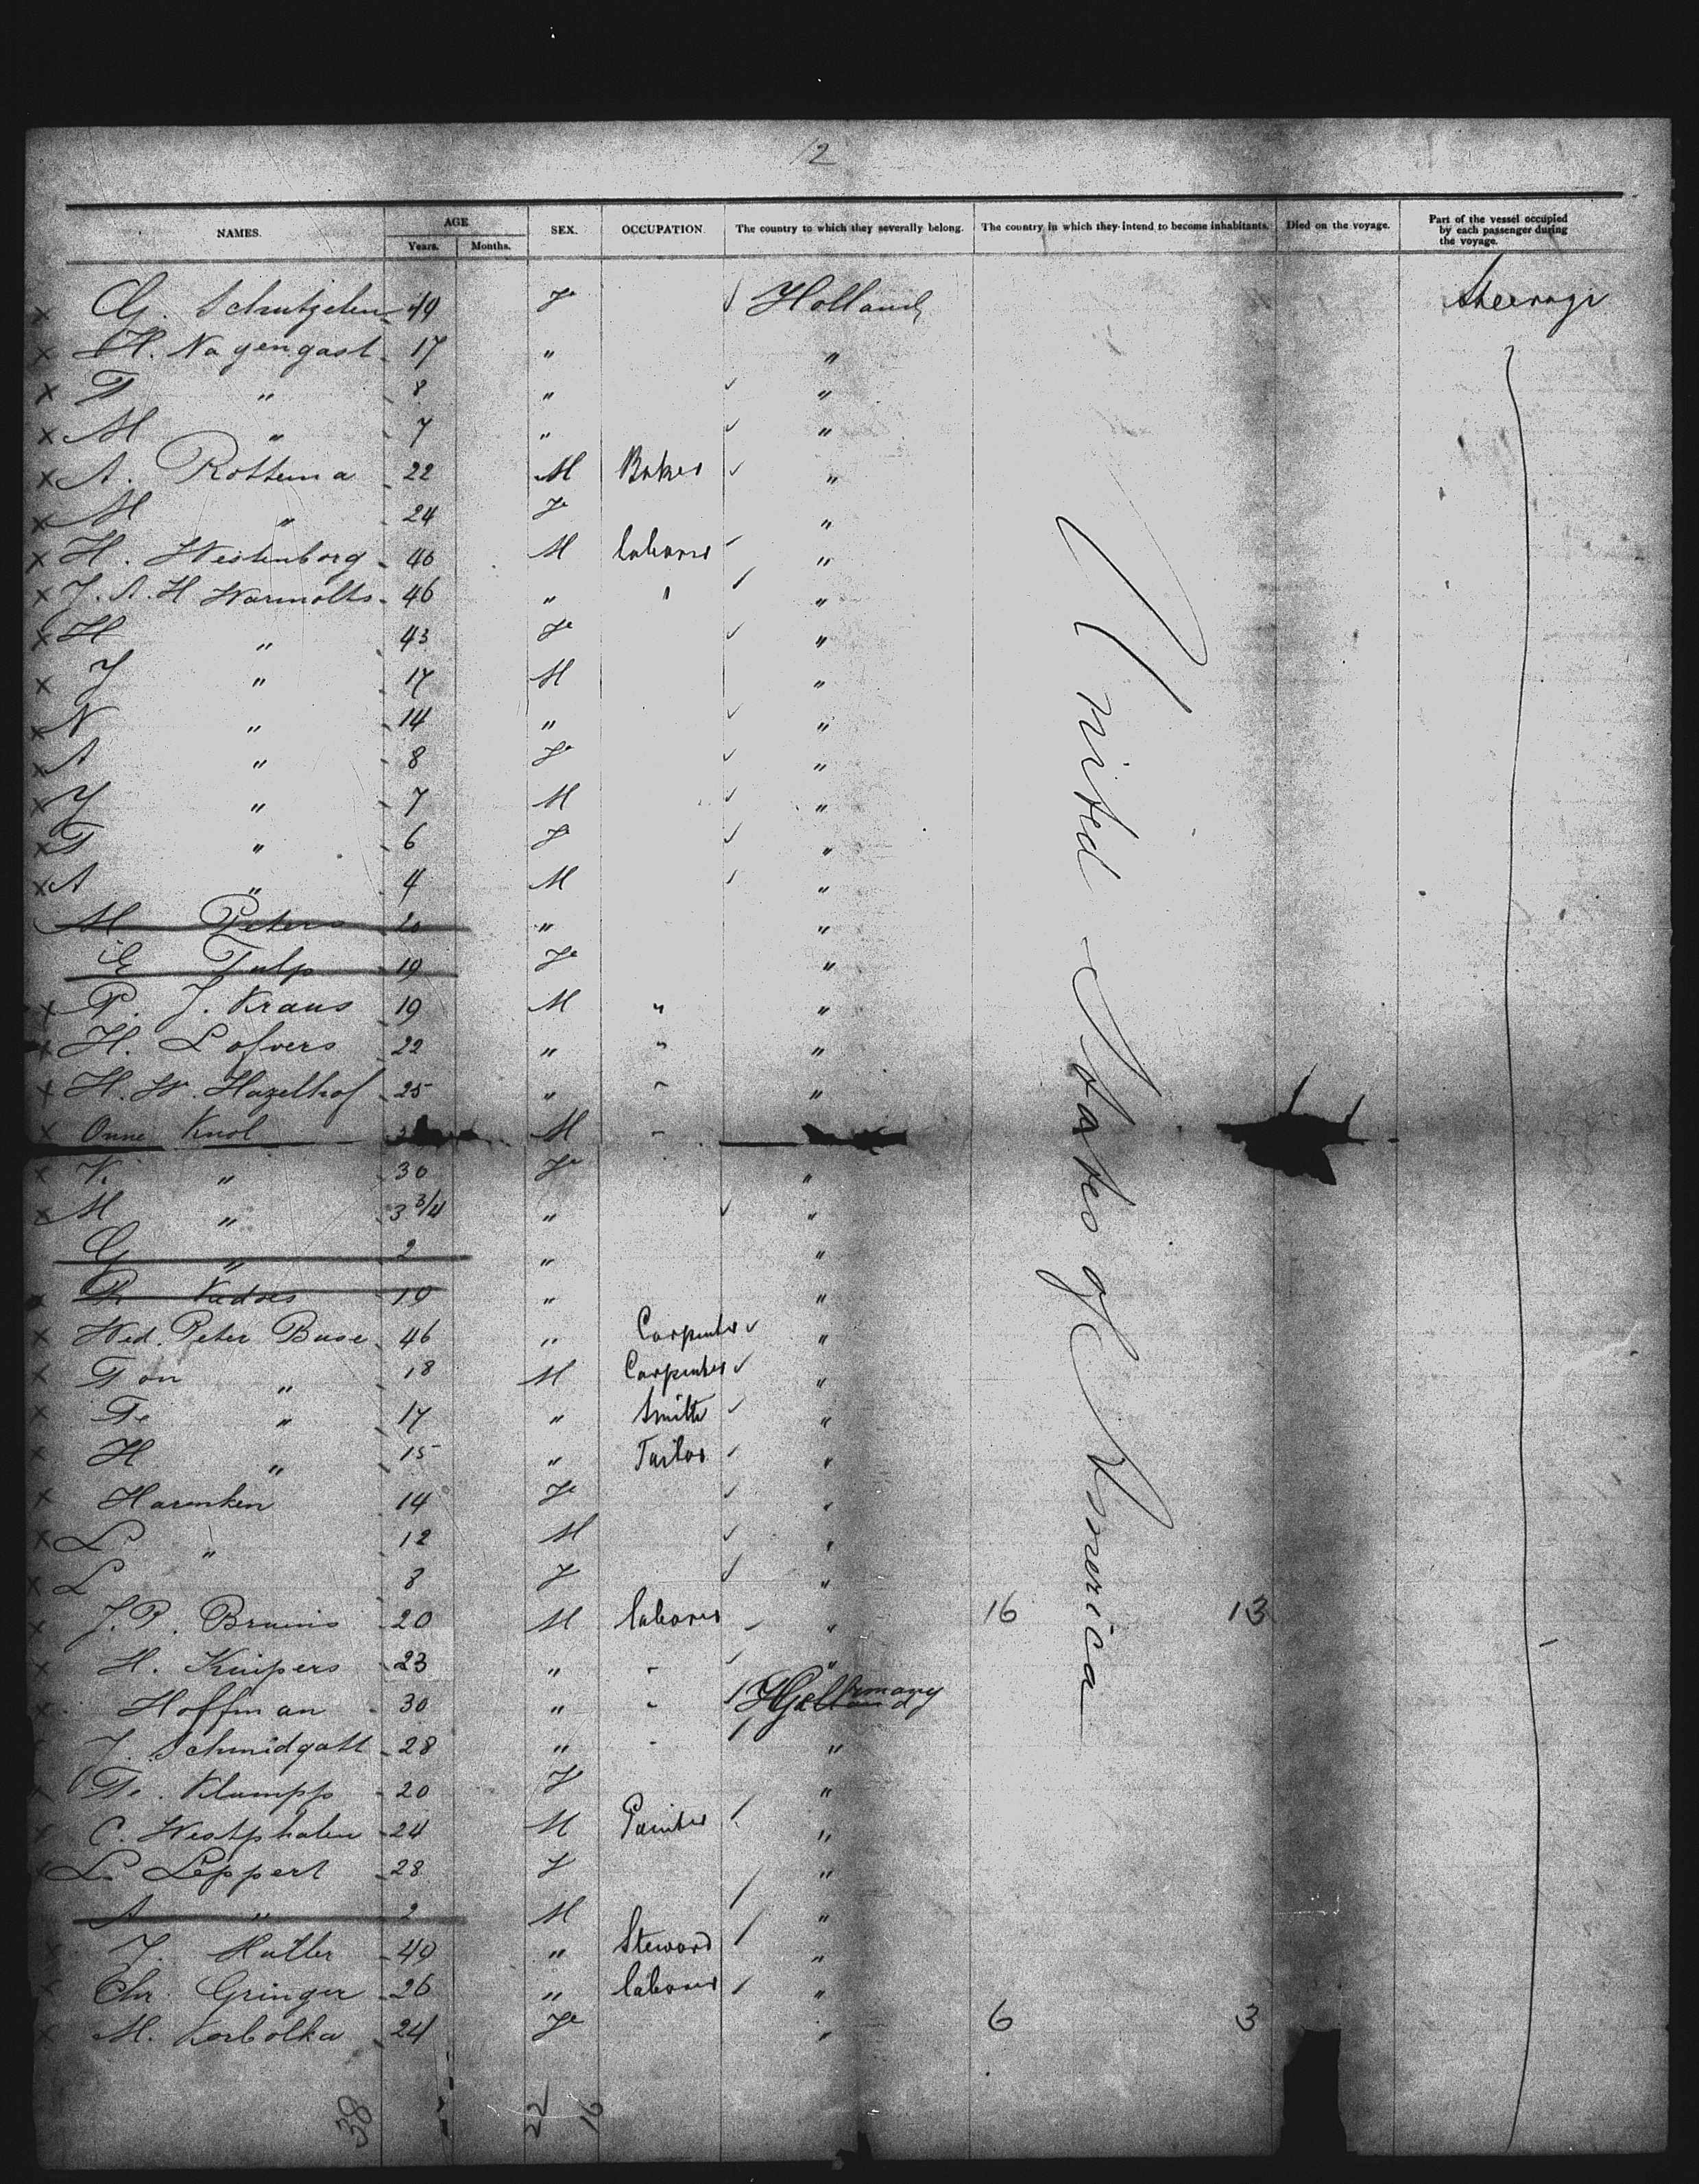 12
NAMES. AGE Years. Months. SEX. OCCUPATION. The country to which they severally belong. The country in which they intend to become inhabitants. Died on the voyage. Part of the vessel occupied by each passenger during the voyage.
x G. 49 Fe Holland Steerage
x H. Nagengast 17 " "
x T " 8 " "
x M " 7 " "
x A. Rottema 22 M Baker "
x M " 24 Fe "
x H. Westenborg 46 M laborer "
x J. A. H Warmolts 46 " " "
x H " 43 Fe "
x J " 17 M "
x N " 14 " "
x A " 8 Fe "
x J " 7 M "
x T " 6 Fe "
x A " 4 M "
M Peters 20 " "
E Tulp 19 Fe "
x P. J. Kraus 19 M " "
x H. Lofvers 22 " " "
x H. W. Hazelhof 25 " " "
x Onne Knol M "
x K. " 30 Fe "
x M " 3 3/4 " "
G " 2 " "
19 " "
x Wed. Peter Buse 46 " Carpenter "
x " 18 M Carpenter "
x Fe " 17 " Smith "
x H " 15 " Tailor "
x Harmken 14 Fe "
x L. " 12 M "
x L 8 F "
x J. P. Bruins 20 M laborer " 16 13
x H. Kuipers 23 " " "
x Hoffman 30 " " Germany
J. Schmidgall 28 " " "
x Fe. Klumpp 20 F "
x C. Westphalen 24 M Painter "
x L. Leppert 28 F "
A " 2 M "
x J. Müller 49 " Steward "
x Chr. Gringer 26 " laborer "
x M. Korbolka 24 Fe " 6 3
United States of America
38 22 16